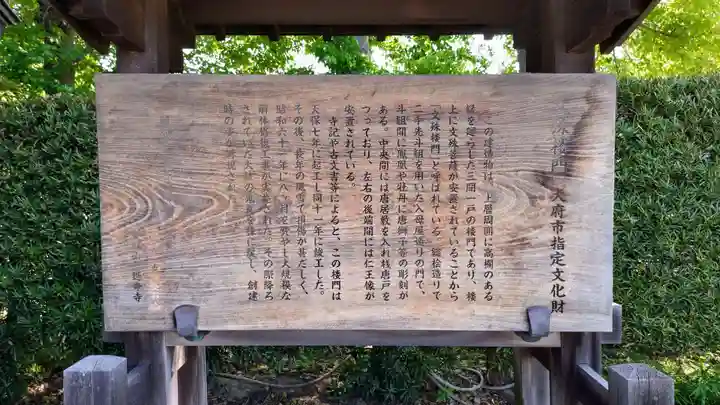 楼門 大府市指定文化財
この建造物は、上層周囲に高欄のある
縁を廻らした三間一戸の楼門であり、楼
上に文殊菩薩が安置されていることから
「文殊楼門」と呼ばれている。総桧造りで
二手先斗組を用いた入母屋造りの門で、
斗組間に鳳凰や牡丹に唐獅子等の彫刻が
ある。中央間には唐居敷を入れ桟唐戸を
つっており、左右の後端間には仁王像が
安置されている。
寺記や古文書等によると、この楼門は
天保七年に起工し同十一年に竣工した。
その後、長年の風雪で損傷が甚だしく、
昭和六十一年に八か月を要やし大規模な
解体修理工事が実施された。その際降ろ
されていた
時の
延命寺